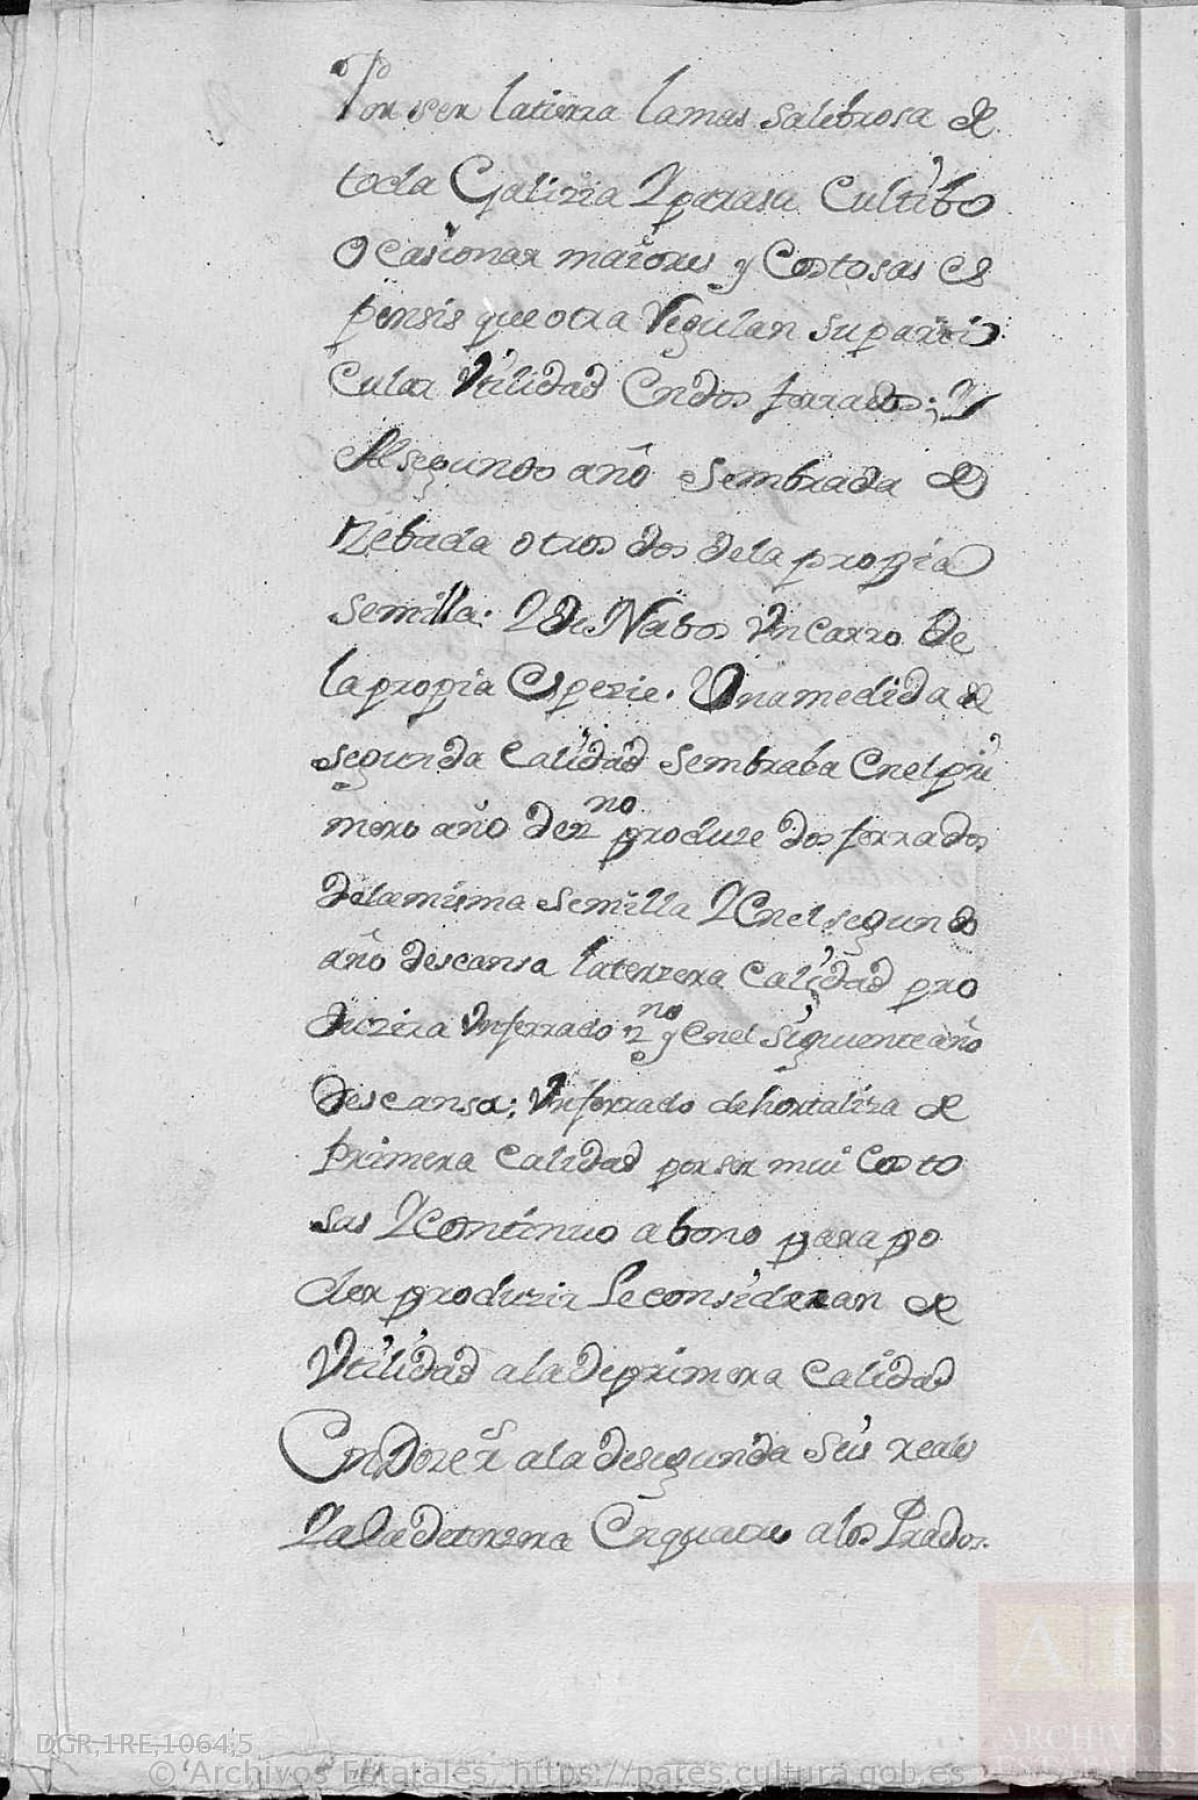 Por ser latierra lamas salebrosa de
toda Galizia Yparasu Cultibo
Ocasionar maiores y Costosas es
pensis queotra Regulan su parti
Cular Utilidad En dos ferrados; Y
Alsegundo año Sembrada de
Zebada otros dos dela propia
semilla: Y de Nabos Un Carro De
la propia Espezie. Una medida de
segunda Calidad sembrada Enelpri
mero año dezno produze dos ferrados
delamisma semilla Y Enel segundo
año descansa laterzera Calidad pro
duzira Unferrado zno y Enel siguiente año
descansa; Unferrado dehortaliza de
primera Calidad por ser mui Costo
sas Y Continuo abono para po
der produzir Le consideran de
Utilidad aladeprimera Calidad
En Doze rs ala desegunda seis reales
Yala deterzera En quatro alos Prados
DGR,1RE,1064,5
© Archivos Estatales, https://pares.cultura.gob.es
AE
ARCHIVOS
ESTATALES